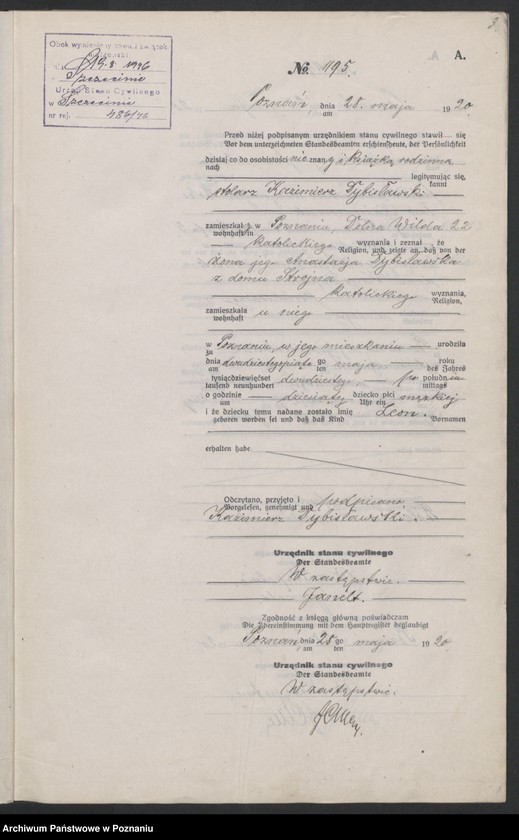 Obok wymieniony zawarł związek
19.8 1946
Szczecinie
Urząd Stanu Cywilnego
w Szczecinie
nr rej. 486/46
3
A. A.
No 1195.
Poznań dnia 28. maja 1920.
am
Przed niżej podpisanym urzędnikiem stanu cywilnego stawił się
Vor dem unterzeichneten Standesbeamten erschien heute, der Persönlichkeit
dzisiaj co do osobistości nieznany i książką rodzinną
nach
legitymując się,
kannt
stolarz Kazimierz Dybisławski
zamieszkał y w Poznaniu, Dolna Wilda 22
wohnhaft in
katolickiego wyznania i zeznał, że
Religion, und zeigte an, daß von der
żona jego Anastazja Dybisławska
z domu Strojna
katolickiego wyznania,
Religion,
zamieszkała u niego
wohnhaft
w Poznaniu, w jego mieszkaniu urodziła
zu
dnia dwudziestegopiąte go maja roku
am ten des Jahres
tysiącdziewięćset dwudziestego, przed południem
tausend neunhundert mittags
o godzinie dziewiątej dziecko płci męskiej
um Uhr ein
i że dziecku temu nadane zostało imię Leon.
geboren worden sei und daß das Kind Vornamen
erhalten habe
Odczytano, przyjęto i podpisano
Vorgelesen, genehmigt und
Kazimierz Dybisławski.
Urzędnik stanu cywilnego
Der Standesbeamte
W zastępstwie.
Zgodność z księgą główną poświadczam
Die Übereinstimmung mit dem Hauptregister beglaubigt
Poznań, dnia 28 go maja 1920
am ten
Urzędnik stanu cywilnego
Der Standesbeamte
W zastępstwie.
Archiwum Państwowe w Poznaniu
www.genealogiawarchiwach.pl